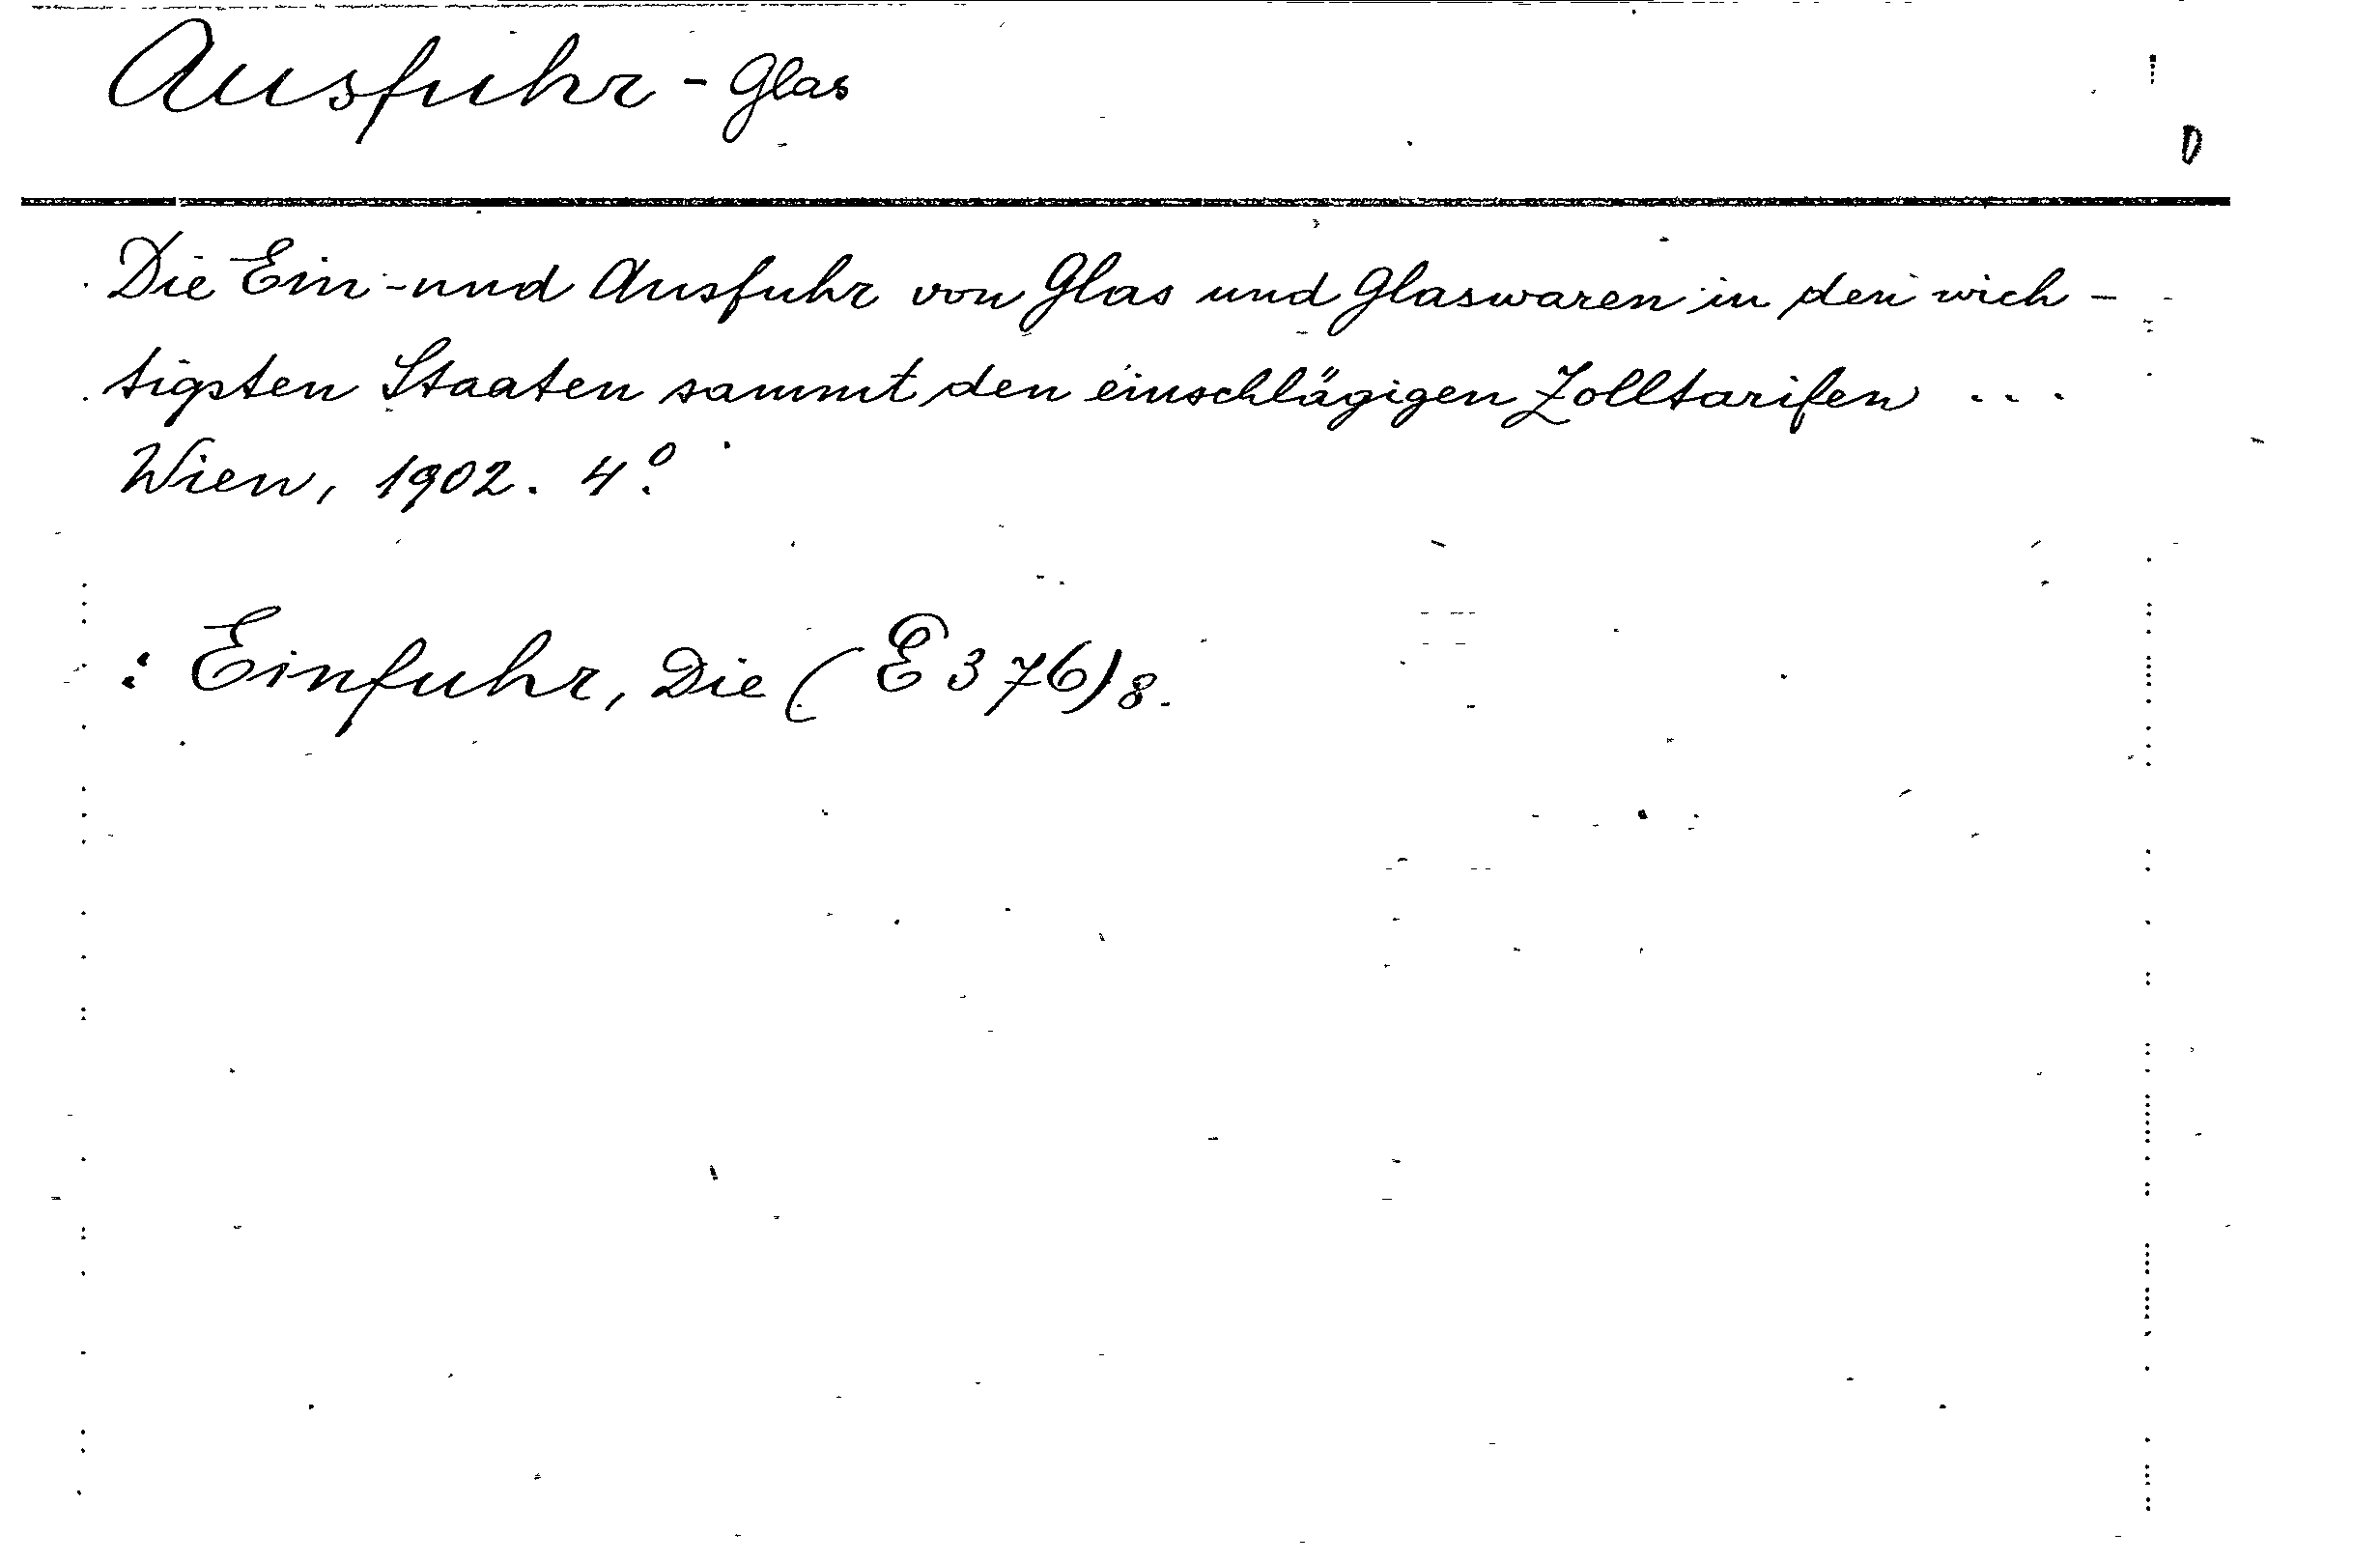 Ausfuhr - Glas
D
Die Ein- und Ausfuhr von Glas und Glaswaren in den wich-
tigsten Staaten sammt den einschlägigen Zolltarifen ...
Wien, 1902. 4°.
: Einfuhr, Die (E 376) 8.